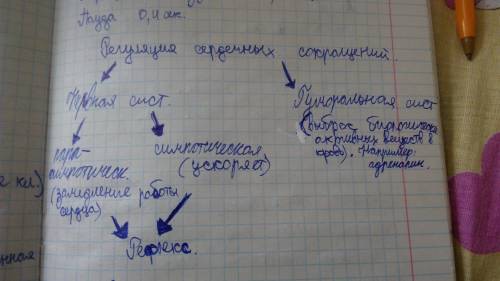 Пауза 0,4 сек.
Регуляция сердечных сокращений.
Нервная сист.
Гуморальная сист
(выброс биологически
активных веществ в
кровь). Например:
адреналин.
пара-
симпотическ.
(замедление работы
сердца)
симпотическая
(ускоряет)
Рефлекс.